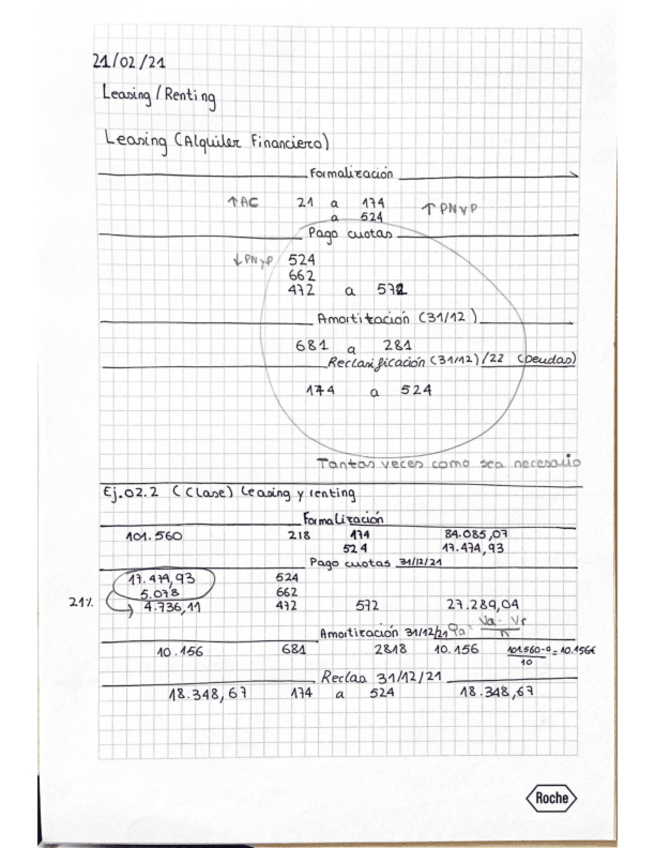 21/02/21
Leasing/Renting
Leasing (Alquiler Financiero)
Formalización
↑AC 21 a 174 ↑PNyP
a 524
Pago cuotas
↓PNyP 524
662
472 a 572
Amortización (31/12)
681 a 281
Reclasificación (31/12)/22 (Deudas)
174 a 524
Tantas veces como sea necesario
Ej.02.2 (Clase) Leasing y renting
Formalización
101.560 218 174 84.085,07
524 17.474,93
Pago cuotas 31/12/21
17.474,93 524
5.078 662
21% 4.736,11 472 572 27.289,04
Amortización 31/12/21 Qa = Va - Vr / n
10.156 681 2818 10.156 101.560-0 / 10 = 10.156€
Reclas 31/12/21
18.348,67 174 a 524 18.348,67
Roche